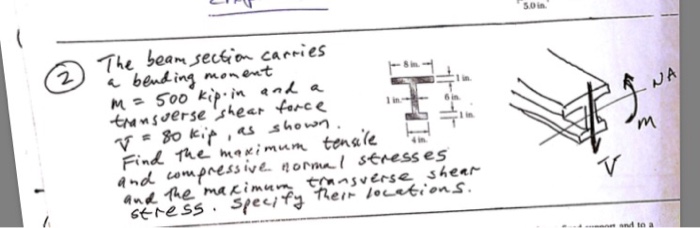 5.0 in.
2 The beam section carries
a bending moment
M = 500 kip.in and a
transverse shear force
V = 80 kip, as shown.
Find the maximum tensile
and compressive normal stresses
and the maximum transverse shear
stress. Specify their locations.
8 in.
1 in.
1 in.
6 in.
1 in.
4 in.
NA
M
V
and to a